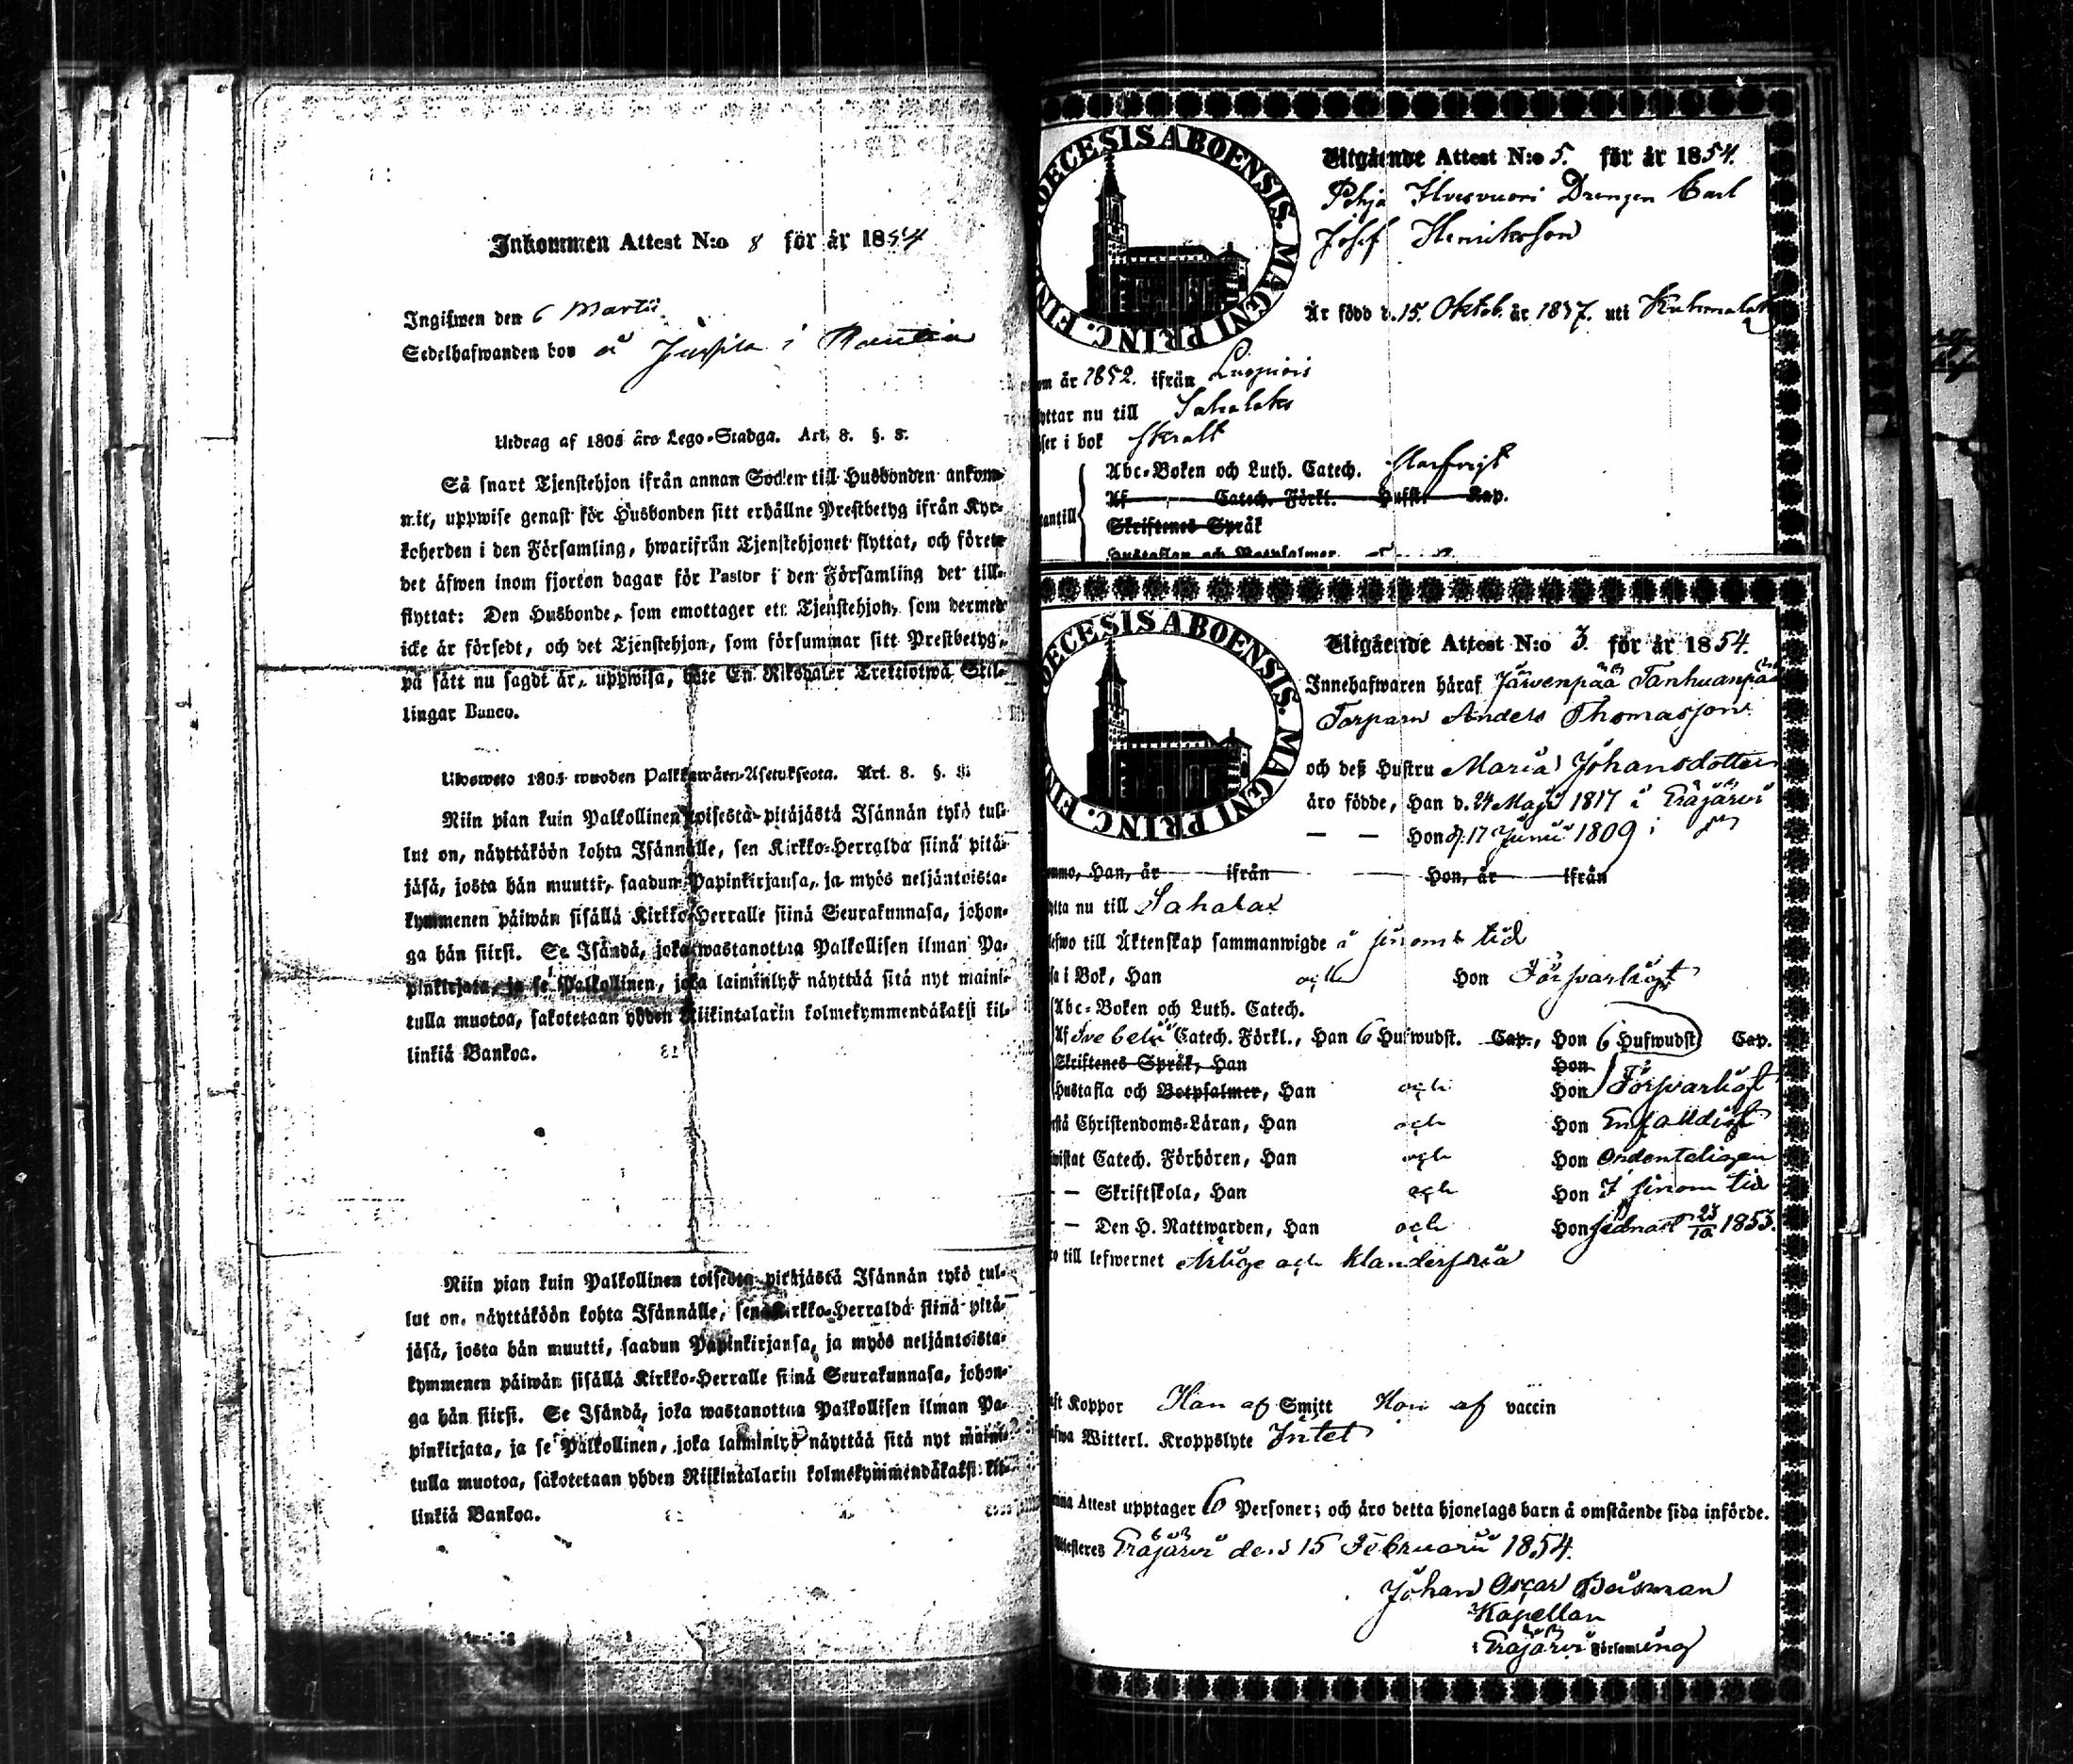 Inkommen Attest N:o 8 för år 1854
Ingifwen den 6 Martii
Sedelhafwanden bor å Jussila i Rautia
Utdrag af 1805 års Lego-Stadga. Art. 8. §. 8.
Så snart Tjenstehjon ifrån annan Socken till Husbonden ankom-
mit, uppwise genast för Husbonden sitt erhållne Prestbetyg ifrån Kyr-
koherden i den Församling, hwarifrån Tjenstehjonet flyttat, och förete
det äfwen inom fjorton dagar för Pastor i den Församling det till-
flyttat: Den Husbonde, som emottager ett Tjenstehjon, som dermed
icke är försedt, och det Tjenstehjon, som försummar sitt Prestbetyg,
på sätt nu sagdt är, uppwisa, böte En Riksdaler Trettiotwå Skil-
lingar Banco.
Ulosweto 1805 wuoden Palkkawäen-Asetuksesta. Art. 8. §. 8.
Niin pian kuin Palkollinen toisesta pitäjästä Isännän tykö tul-
lut on, näyttäköön kohta Isännälle, sen Kirkko-Herralda siinä pitä-
jäsä, josta hän muutti, saadun Papinkirjansa, ja myös neljäntoista-
kymmenen päiwän sisällä Kirkko-Herralle siinä Seurakunnasa, johon-
ga hän siirsi. Se Isändä, joka wastanottaa Palkollisen ilman Pa-
pinkirjata, ja se Palkollinen, joka laiminlyö näyttää sitä nyt maini-
tulla muotoa, sakotetaan yhden Riikintalarin kolmekymmendäkaksi kil-
linkiä Bankoa.
Niin pian kuin Palkollinen toisesta pitäjästä Isännän tykö tul-
lut on, näyttäköön kohta Isännälle, sen Kirkko-Herralda siinä pitä-
jäsä, josta hän muutti, saadun Papinkirjansa, ja myös neljäntoista-
kymmenen päiwän sisällä Kirkko-Herralle siinä Seurakunnasa, johon-
ga hän siirsi. Se Isändä, joka wastanottaa Palkollisen ilman Pa-
pinkirjata, ja se Palkollinen, joka laiminlyö näyttää sitä nyt maini-
tulla muotoa, sakotetaan yhden Riikintalarin kolmekymmendäkaksi kil-
linkiä Bankoa.
OECESIS ABOENSIS. MAGNI PRINC. FIN
Utgående Attest N:o 5. för år 1854.
Pohja Drengen Carl
Josef Henriksson
Är född d. 15. Oktob. år 1837. uti Kuhmalaks
om år 1852. ifrån Luopiois
yttar nu till Sahalaks
ser i bok
Abc-Boken och Luth. Catech. Försvarligt
Af Catech. Förkl. Hufst. Kap.
antill
Skriftenes Språk
Hustaflan och Botpsalmer
OECESIS ABOENSIS. MAGNI PRINC. FIN
Utgående Attest N:o 3. för år 1854.
Innehafwaren häraf Järwenpää Tanhuanpää
Torparn Anders Thomasson
och deß Hustru Maria Johansdotter
äro födde, Han d. 24 Maji 1817 i Eräjärvi
— — Hon d. 17 Junii 1809 i
ommo, Han, år ifrån Hon, år ifrån
ytta nu till Sahalax
lefwo till Äktenskap sammanwigde i sinom tid
sa i Bok, Han och Hon Försvarligt
Abc-Boken och Luth. Catech.
Af Svebelii Catech. Förkl., Han 6 Hufwudst. Cap., Hon 6 Hufwudst Cap.
Skriftenes Språk, Han Hon
Hustafla och Botpsalmer, Han och Hon Försvarligt
stå Christendoms-Läran, Han och Hon Enfalldigt
wistat Catech. Förhören, Han och Hon Ordenteligen
— — Skriftskola, Han och Hon I sinom tid
— — Den H. Nattwarden, Han och Hon sednast 23/10 1853.
ro till lefwernet Ärlige och klanderfria
aft Koppor Han af Smitt Hon af vaccin
afwa Witterl. Kroppslyte Intet
enna Attest upptager 6 Personer; och äro detta hjonelags barn å omstående sida införde.
Attesteres Eräjärvi den 15 Februarii 1854.
Johan Oscar
Kapellan
i Eräjärvi Församling